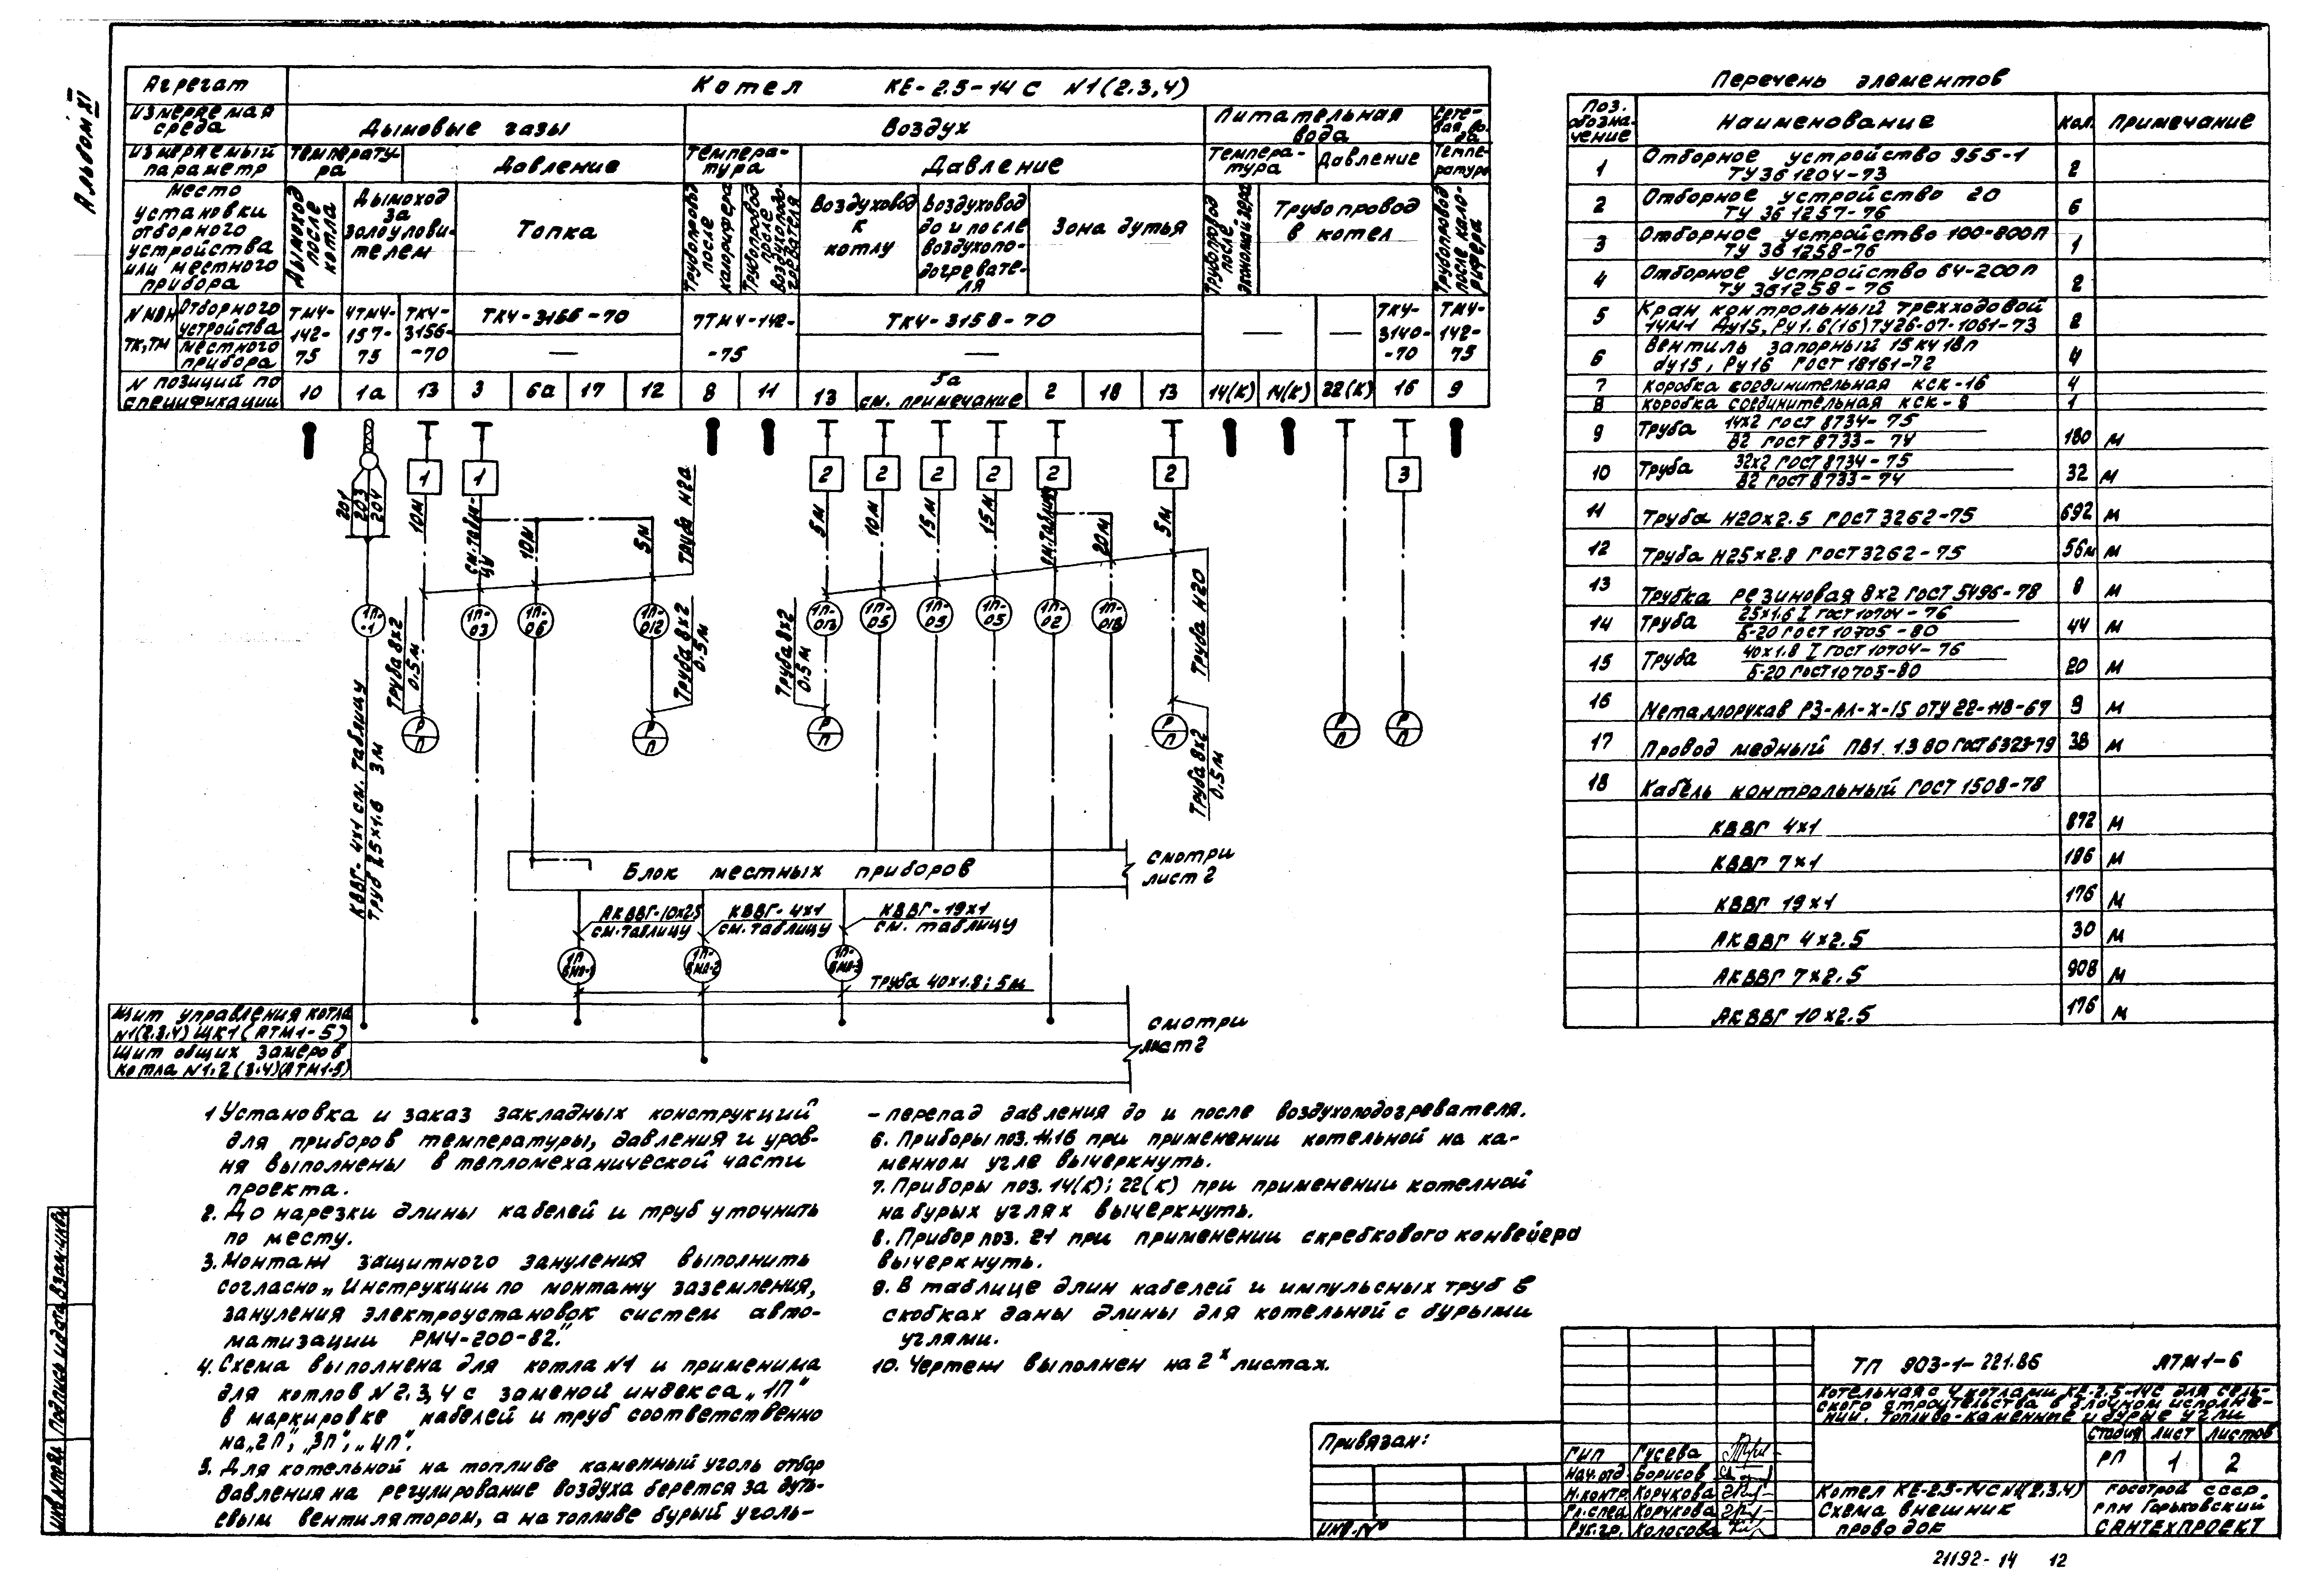 Альбом XI
Агрегат
Котел КЕ-2.5-14С N1(2.3,4)
Измеряемая среда
Дымовые газы
Воздух
Питательная вода
Сетевая вода
Измеряемый параметр
Температура
Давление
Температура
Давление
Температура
Давление
Температура
Место установки отборного устройства или местного прибора
Дымоход после котла
Дымоход за золоуловителем
Топка
Трубопровод после калорифера
Трубопровод после воздухоподогревателя
Воздуховод к котлу
Воздуховод до и после воздухоподогревателя
Зона дутья
Трубопровод после экономайзера
Трубопровод в котел
Трубопровод после калорифера
N МВН ТК,ТМ
Отборного устройства
местного прибора
ТМ4-142-75
4ТМ4-157-75
ТК4-3156-70
ТК4-3156-70
—
7ТМ4-142-75
ТК4-3158-70
—
—
—
ТК4-3140-70
ТМ4-142-75
N позиций по спецификации
10 1а 13 3 6а 17 12 8 11 13 5а см. примечание 2 18 13 14(к) 14(к) 22(к) 16 9
1 1 2 2 2 2 2 2 3
201
203
204
10м
см. таблицу
10м
5м
Труба Н20
5м
10м
15м
15м
см. таблицу
20м
5м
Труба Н20
1П-1
1П-03
1П-06
1П-012
1П-05
1П-05
1П-05
1П-02
1П-018
Труба 8х2 0.5м
Труба 8х2 0.5м
Труба 8х2 0.5м
Труба 8х2 0.5м
Р П
Р П
Р П
Р П
Р П
Р П
КВВГ-4х1 см. таблицу
Труб 25х1.6 3м
Блок местных приборов
смотри
лист 2
АКВВГ-10х2.5
см. таблицу
КВВГ-4х1
см. таблицу
КВВГ-19х1
см. таблицу
1П БМП-1
1П-БМП-2
1П-БМП-3
Труба 40х1.8; 5м
Щит управления котла
N1(2.3,4) ЩК1 (АТМ1-5)
Щит общих замеров
котла N1.2 (3.4)(АТМ1.5)
смотри
лист 2
Перечень элементов
Поз. обозначение Наименование Кол. Примечание
1 Отборное устройство 955-1 2
ТУ 36 1204-73
2 Отборное устройство 20 6
ТУ 36 1257-76
3 Отборное устройство 100-800п 1
ТУ 36 1258-76
4 Отборное устройство 64-200п 2
ТУ 36 1258-76
5 Кран контрольный трехходовой 2
14М1 Ду15, Ру1.6(16) ТУ26-07-1061-73
6 Вентиль запорный 15кч18п 4
dу15, Ру16 ГОСТ 18161-72
7 Коробка соединительная КСК-16 4
8 Коробка соединительная КСК-8 1
9 Труба 14х2 ГОСТ 8734-75 180 м
В2 ГОСТ 8733-74
10 Труба 32х2 ГОСТ 8734-75 32 м
В2 ГОСТ 8733-74
11 Труба Н20х2.5 ГОСТ 3262-75 692 м
12 Труба Н25х2.8 ГОСТ 3262-75 56м м
13 Трубка резиновая 8х2 ГОСТ 5496-78 8 м
14 Труба 25х1.6 I ГОСТ 10704-76 44 м
Б-20 ГОСТ 10705-80
15 Труба 40х1.8 I ГОСТ 10704-76 20 м
Б-20 ГОСТ 10705-80
16 Металлорукав РЗ-АЛ-Х-15 ОТУ 22-118-67 9 м
17 Провод медный ПВ1 1.380 ГОСТ 6323-79 38 м
18 Кабель контрольный ГОСТ 1508-78
КВВГ 4х1 872 м
КВВГ 7х1 186 м
КВВГ 19х1 176 м
АКВВГ 4х2.5 30 м
АКВВГ 7х2.5 908 м
АКВВГ 10х2.5 176 м
1 Установка и заказ закладных конструкций
для приборов температуры, давления и уров-
ня выполнены в тепломеханической части
проекта.
2. До нарезки длины кабелей и труб уточнить
по месту.
3. Монтаж защитного зануления выполнить
согласно „Инструкции по монтажу заземления,
зануления электроустановок систем авто-
матизации РМ4-200-82."
4. Схема выполнена для котла N1 и применима
для котлов N 2.3,4 с заменой индекса „1П"
в маркировке кабелей и труб соответственно
на „2П", „3П", „4П".
5. Для котельной на топливе каменный уголь отбор
давления на регулирование воздуха берется за дуть-
евым вентилятором, а на топливе бурый уголь-
- перепад давления до и после воздухоподогревателя.
6. Приборы поз. 11.16 при применении котельной на ка-
менном угле вычеркнуть.
7. Приборы поз. 14(к); 22(к) при применении котелной
на бурых углях вычеркнуть.
8. Прибор поз. 21 при применении скребкового конвейера
вычеркнуть.
9. В таблице длин кабелей и импульсных труб в
скобках даны длины для котельной с бурыми
углями.
10. Чертеж выполнен на 2х листах.
Привязан:
Инв. N°
ТП 903-1-221.86 АТМ1-6
Котельная с 4 котлами КЕ-2.5-14С для сель-
ского строительства в блочном исполне-
нии. Топливо-каменные и бурые угли
Стадия Лист Листов
РП 1 2
ГИП Гусева
Нач. отд. Борисов
Н.контр. Корчкова
Гл. спец Корчкова
Рук. гр. Колосова
Котел КЕ-2.5-14С N1(2.3,4)
Схема внешник
проводок
Госстрой СССР.
ГПИ Горьковский
САНТЕХПРОЕКТ
Инв N подл. Подпись и дата Взам. инв N
21192-14 12